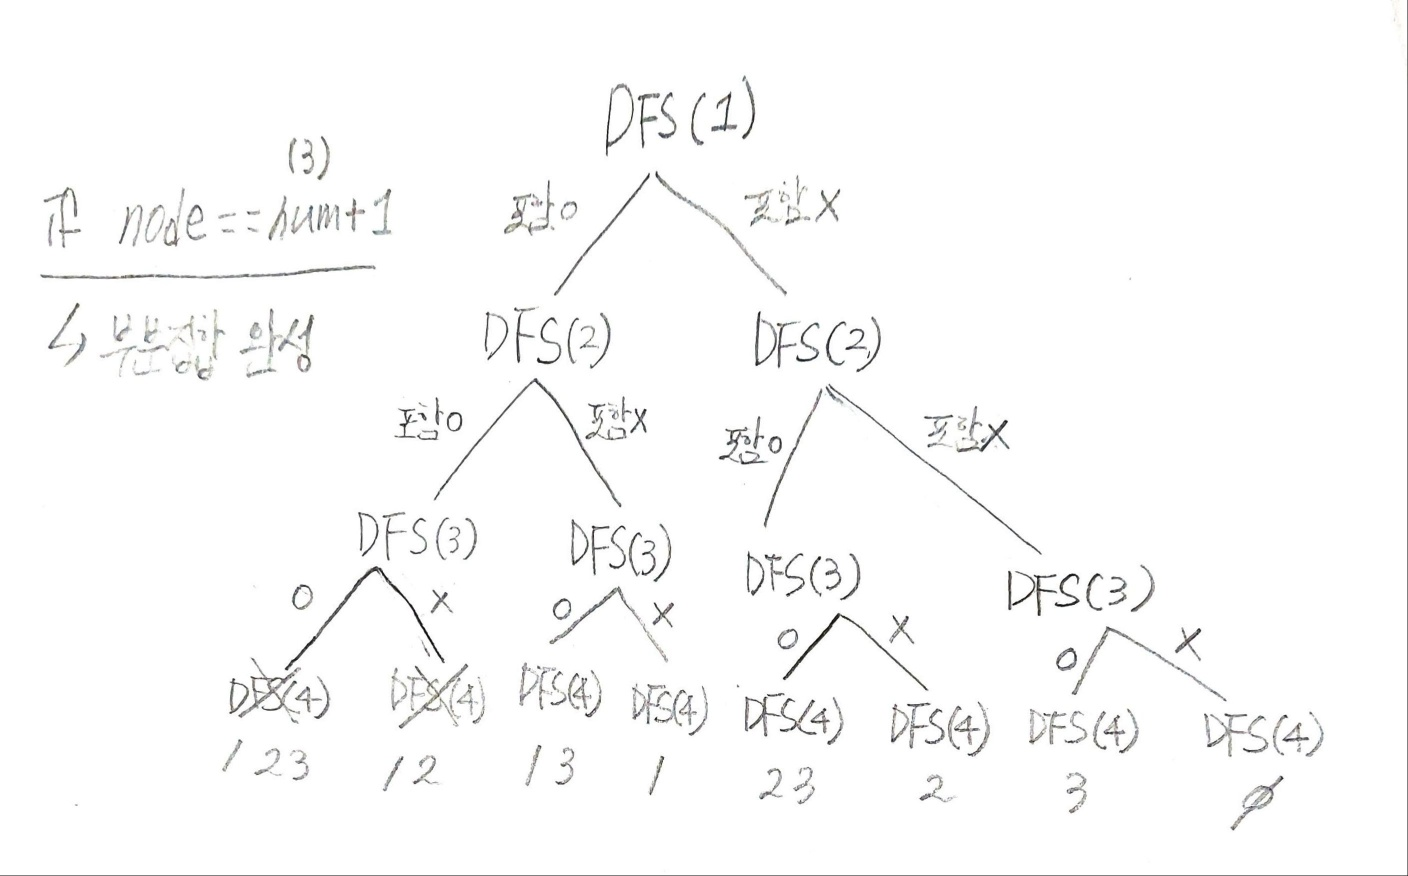 DFS(1)
(3)
if node==num+1
↳ 부분집합 완성
포함O 포함X
DFS(2) DFS(2)
포함O 포함X 포함O 포함X
DFS(3) DFS(3) DFS(3) DFS(3)
O X O X O X O X
DFS(4) DFS(4) DFS(4) DFS(4) DFS(4) DFS(4) DFS(4) DFS(4)
123 12 13 1 23 2 3 ∅